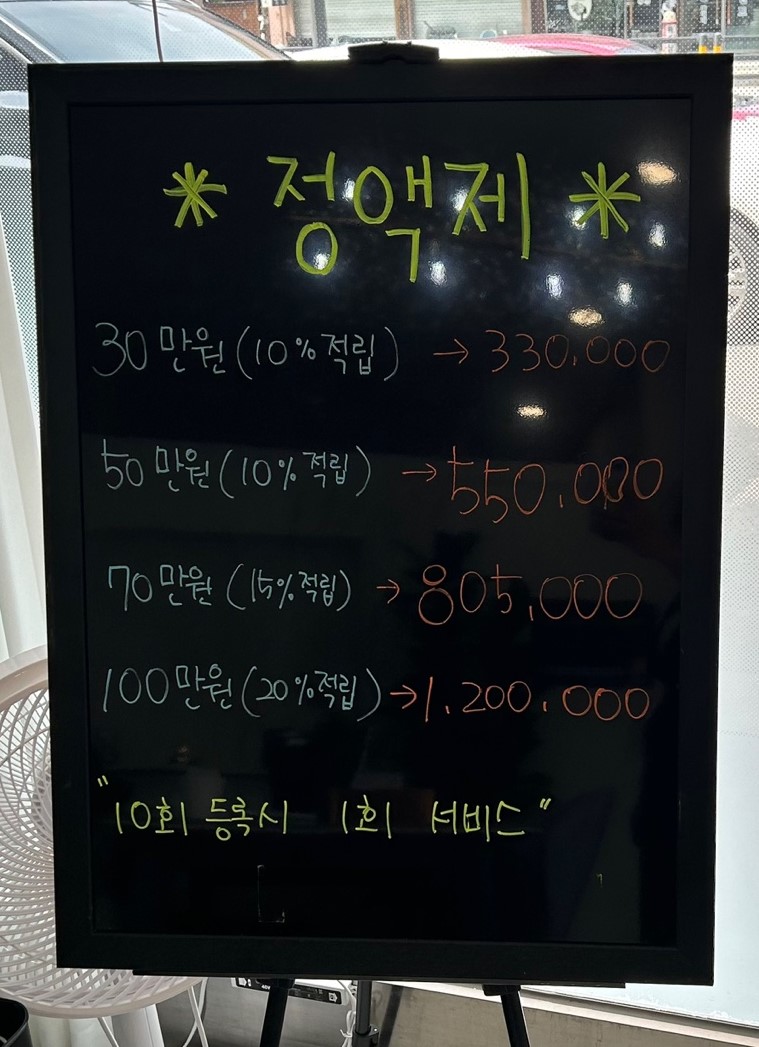 * 정액제 *
30만원(10%적립) → 330.000
50만원(10%적립) → 550.000
70만원(15%적립) → 805,000
100만원(20%적립) → 1.200.000
"10회 등록시 1회 서비스"